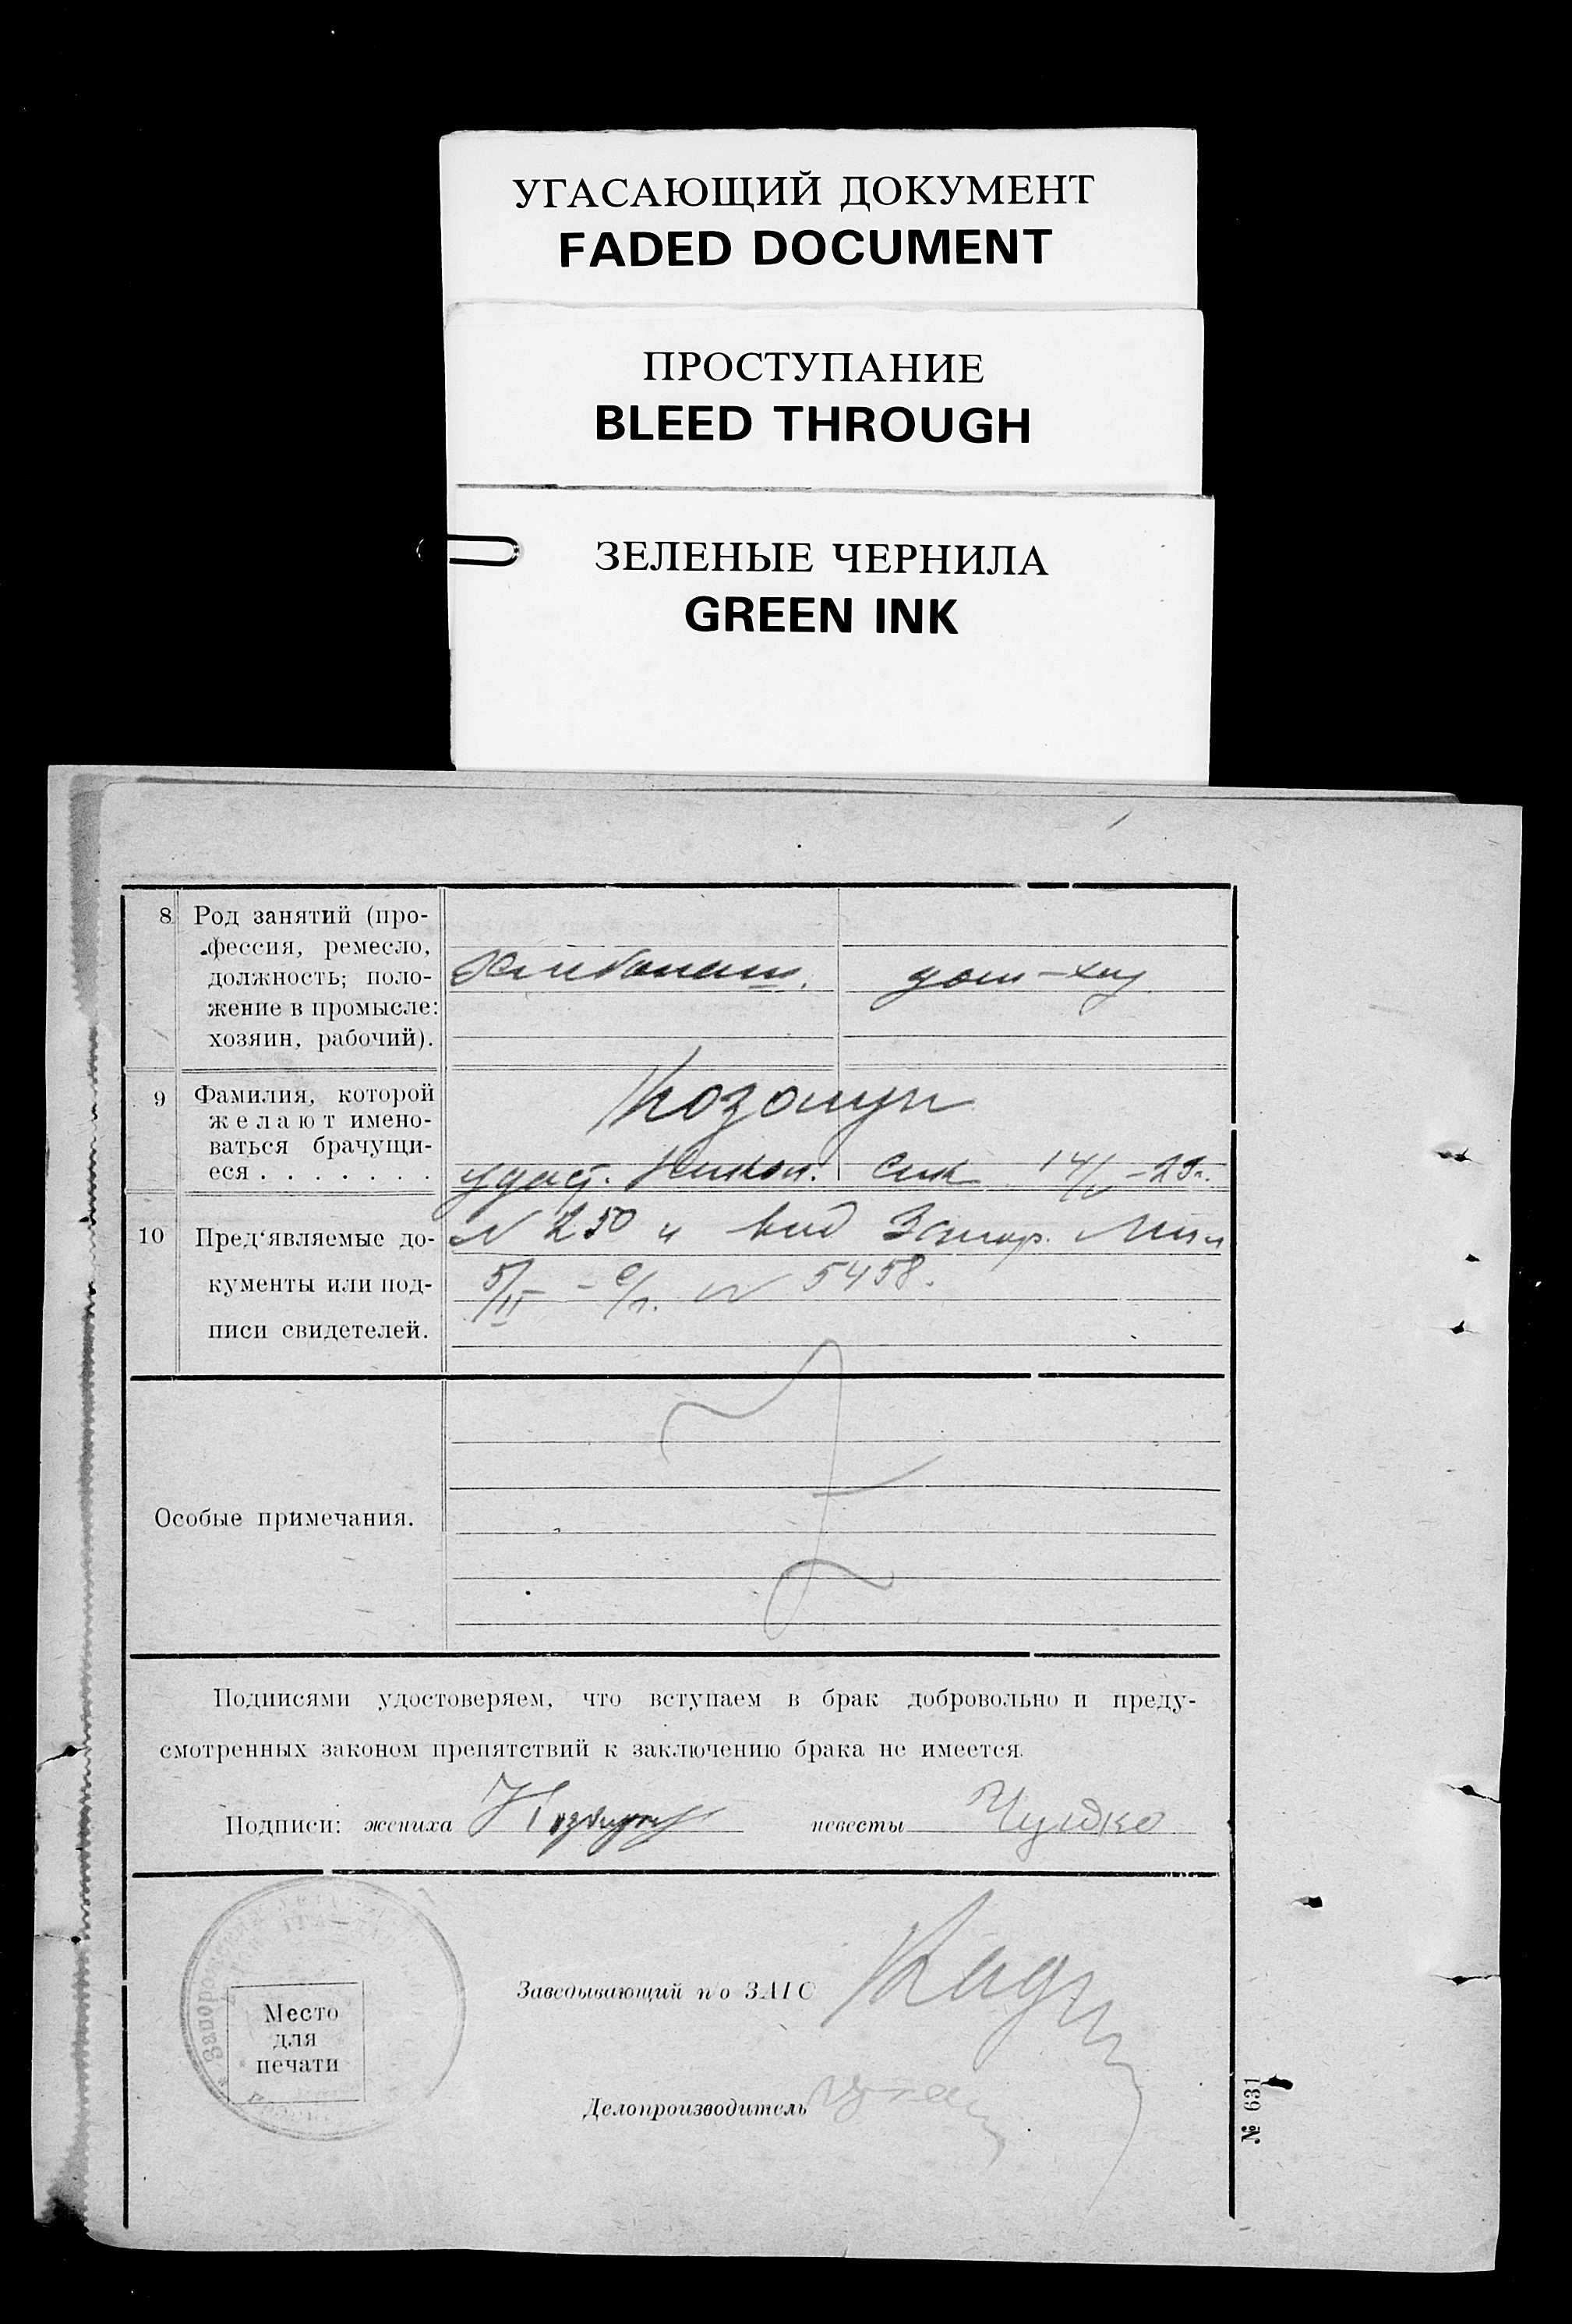 УГАСАЮЩИЙ ДОКУМЕНТ
FADED DOCUMENT
ПРОСТУПАНИЕ
BLEED THROUGH
ЗЕЛЕНЫЕ ЧЕРНИЛА
GREEN INK
8 Род занятий (про-
фессия, ремесло,
должность; поло-
жение в промысле:
хозяин, рабочий).
дом-хоз
9 Фамилия, которой
желают имено-
ваться брачущи-
еся . . . . . . .
удост. 14/V-29г.
10 Пред'являемые до-
кументы или под-
писи свидетелей.
N 250 и вид Запор.
5/II - с/г. N 5458.
Особые примечания.
Подписями удостоверяем, что вступаем в брак добровольно и преду-
смотренных законом препятствий к заключению брака не имеется.
Подписи: жениха невесты
Заведывающий п/о ЗАГС
Место
для
печати
Делопроизводитель
№ 631